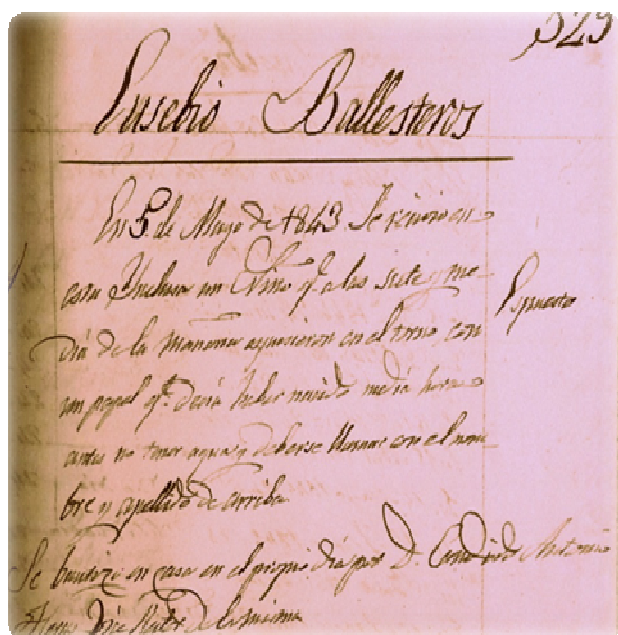 329
Eusebio Ballesteros
En 5 de Mayo de 1843 Se recivio en
esta Ynclusa un Niño q.e a las siete y me
dia de la mañana espusieron en el torno con
un papel q.e decia haber nacido media hora
antes no tener agua y deberse llamar con el nom
bre y apellido de arriba.
Espuesto
Se bautizó en casa en el propio dia por D. Candido Antonio
José Rector de la misma